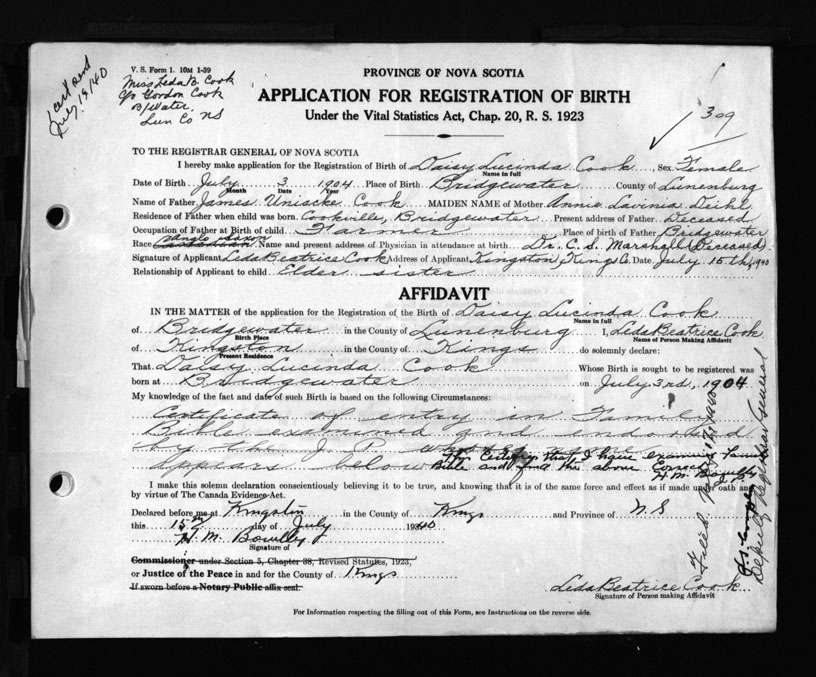 V. S. Form 1. 10M 1-39
Miss Leda B. Cook
c/o Gordon Cook
B/Water,
Lun Co NS
1 cert sent
July 19/40
PROVINCE OF NOVA SCOTIA
APPLICATION FOR REGISTRATION OF BIRTH
Under the Vital Statistics Act, Chap. 20, R. S. 1923
309
TO THE REGISTRAR GENERAL OF NOVA SCOTIA
I hereby make application for the Registration of Birth of Daisy Lucinda Cook, Sex Female
Name in full
Date of Birth July 3 1904 Place of Birth Bridgewater County of Lunenburg
Month Date Year
Name of Father James Uniacke Cook MAIDEN NAME of Mother Annie Lavinia Diehl
Residence of Father when child was born. Cookville, Bridgewater Present address of Father Deceased
Occupation of Father at Birth of child Farmer Place of birth of Father Bridgewater
Race Canadian Anglo Saxon Name and present address of Physician in attendance at birth Dr. C. S. Marshall (Deceased).
Signature of Applicant Leda Beatrice Cook Address of Applicant Kingston, Kings Co. Date July 15th, 1940
Relationship of Applicant to child Elder sister
AFFIDAVIT
IN THE MATTER of the application for the Registration of the Birth of Daisy Lucinda Cook
Name in full
of Bridgewater in the County of Lunenburg I, Leda Beatrice Cook
Birth Place Name of Person Making Affidavit
of Kingston in the County of Kings do solemnly declare:
Present Residence
That Daisy Lucinda Cook Whose Birth is sought to be registered was
born at Bridgewater on July 3rd, 1904
My knowledge of the fact and date of such Birth is based on the following Circumstances:
Certificate of entry in Family
Bible examined and endorsed
by the J. P. whose
appears below
This Certifys that I have examined Family
Bible and find the above Correct
H. M. Bowlby J. P.
I make this solemn declaration conscientiously believing it to be true, and knowing that it is of the same force and effect as if made under oath and
by virtue of The Canada Evidence Act.
Declared before me at Kingston in the County of Kings and Province of N. S
this 15th day of July 1940
H. M. Bowlby
Signature of
Commissioner under Section 5, Chapter 38, Revised Statutes, 1923,
or Justice of the Peace in and for the County of Kings
If sworn before a Notary Public affix seal.
Leda Beatrice Cook
Signature of Person making Affidavit
For Information respecting the filling out of this Form, see Instructions on the reverse side.
Deputy Registrar General